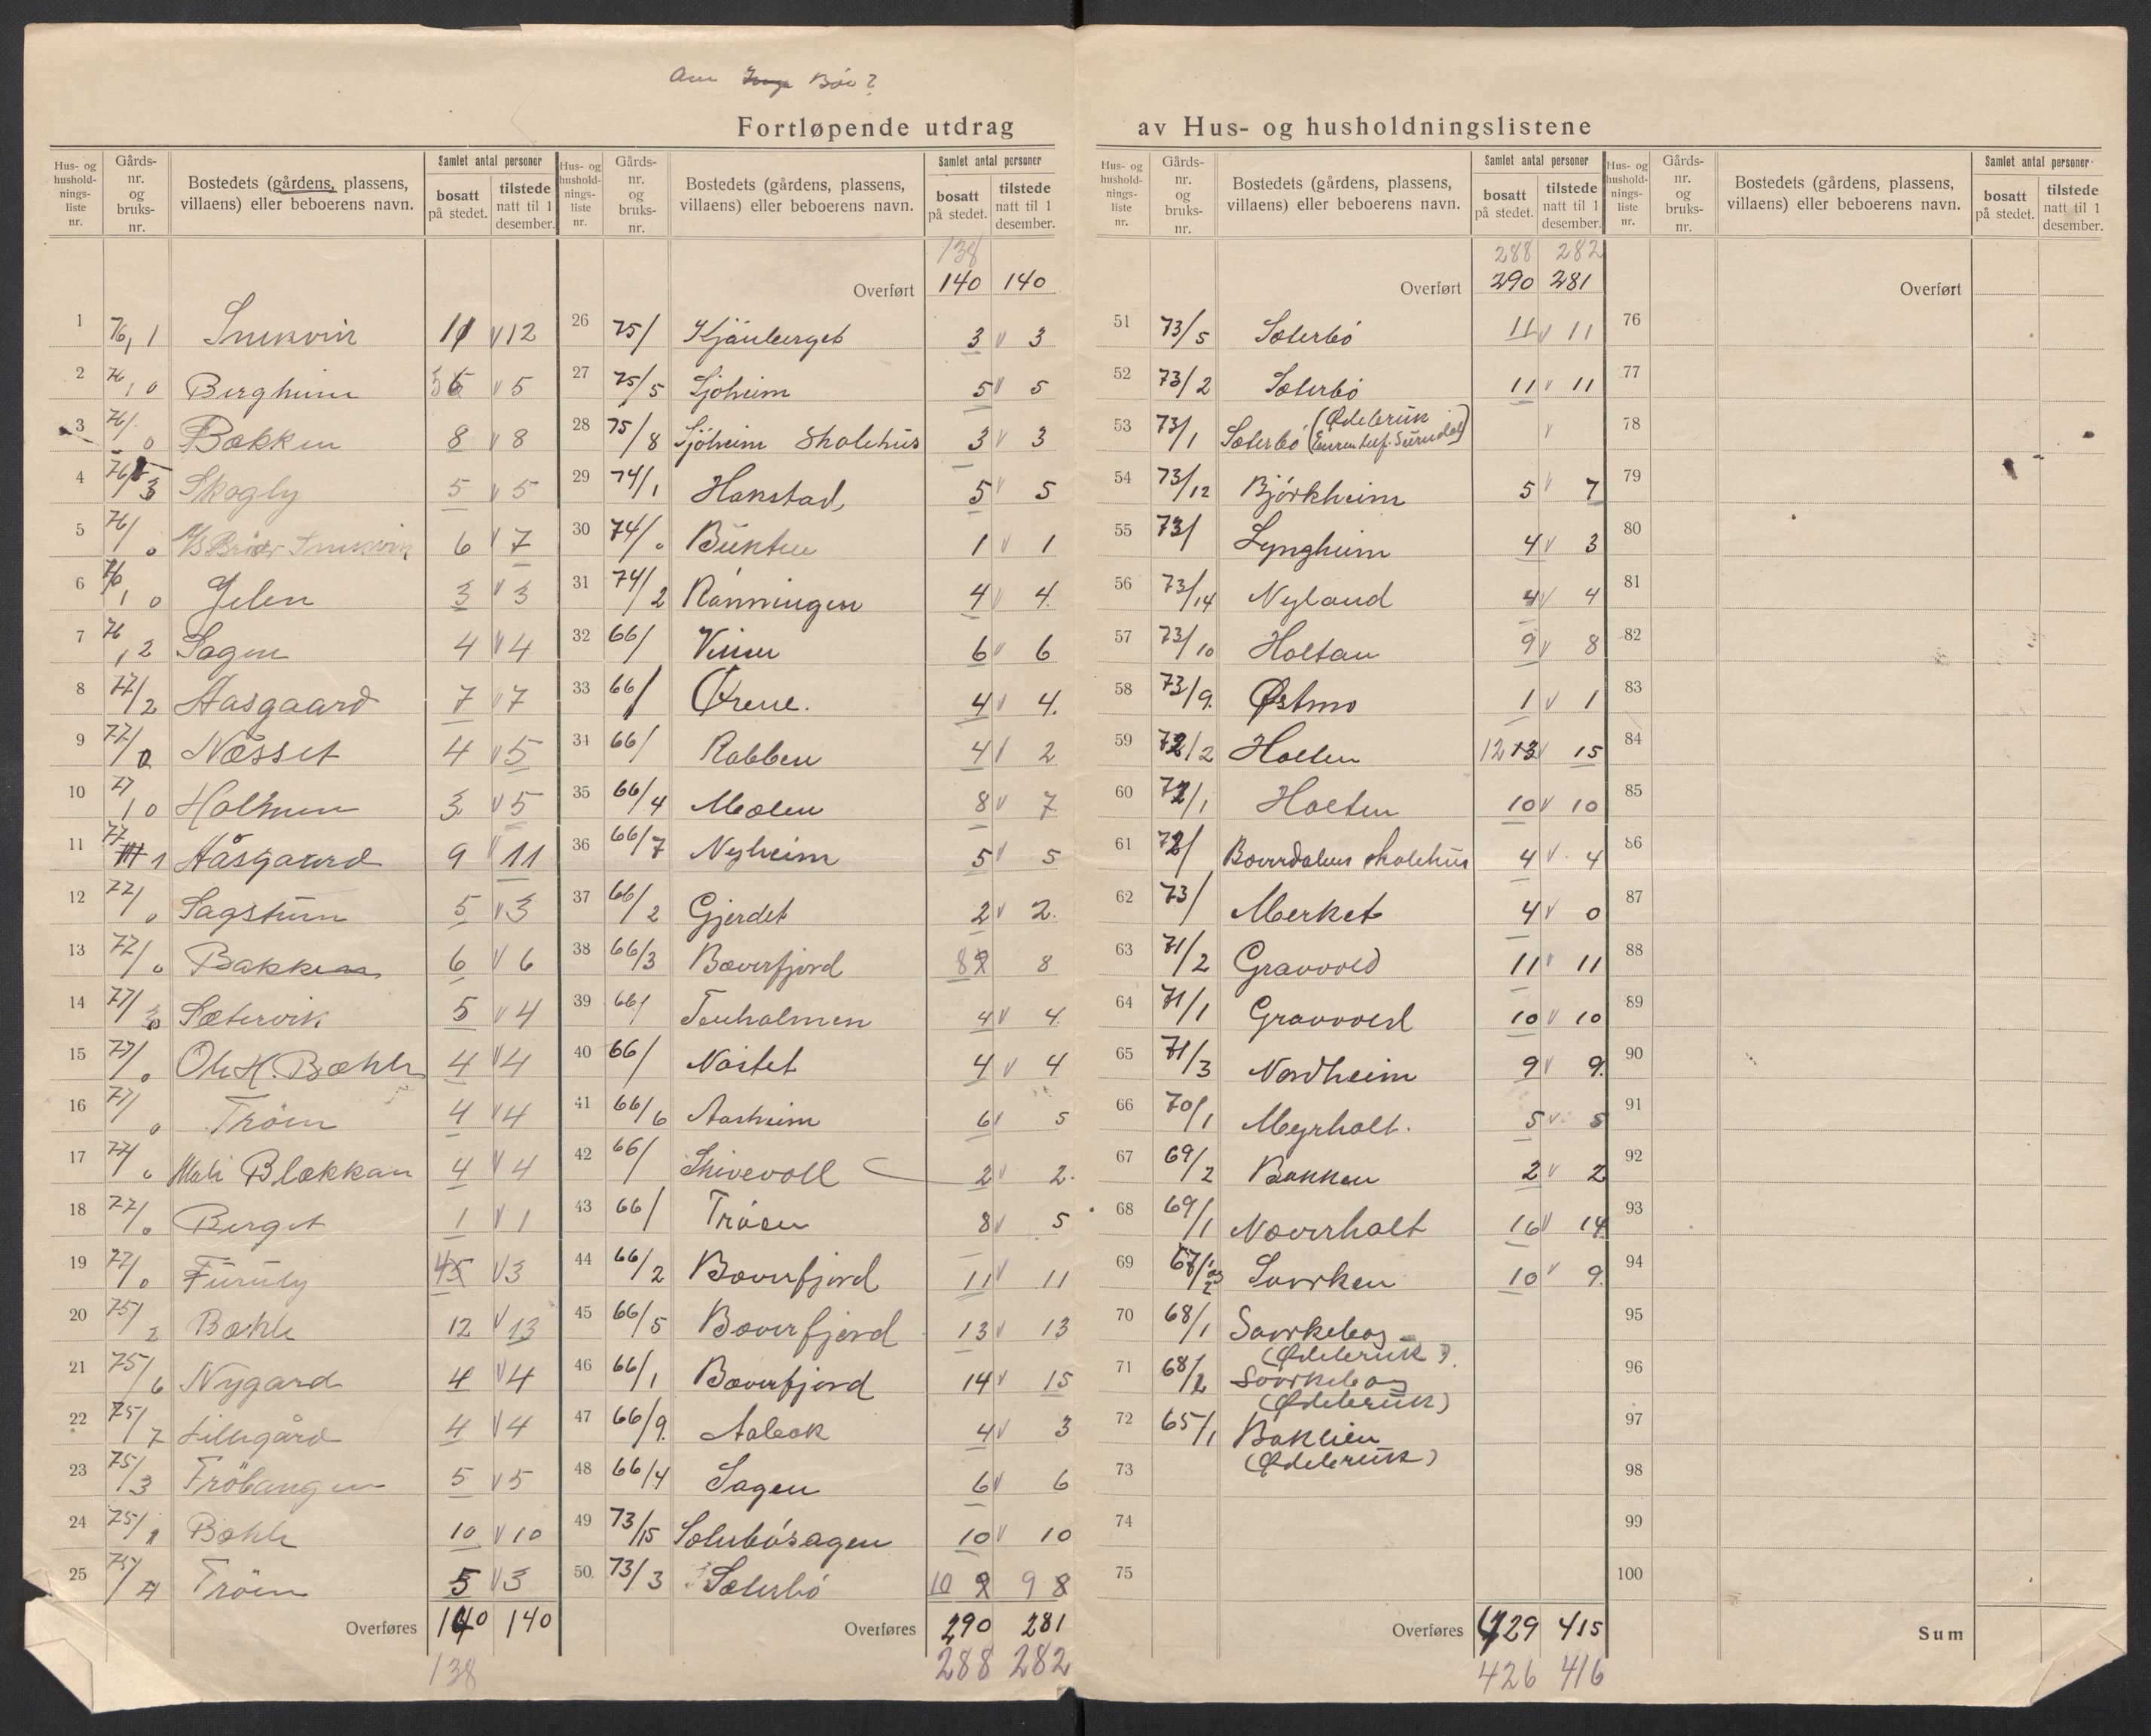 Bóv?
Fortløpende utdrag av Hus- og husholdningslistene
Hus- og husholdnings- liste nr. Gårds- nr. og bruks- nr. Bostedets (gårdens, plassens, villaens) eller beboerens navn. Samlet antal personer bosatt på stedet. tilstede natt til 1 desember.
Hus- og husholdnings- liste nr. Gårds- nr. og bruks- nr. Bostedets (gårdens, plassens, villaens) eller beboerens navn. Samlet antal personer bosatt på stedet. tilstede natt til 1 desember.
Hus- og husholdnings- liste nr. Gårds- nr. og bruks- nr. Bostedets (gårdens, plassens, villaens) eller beboerens navn. Samlet antal personer bosatt på stedet. tilstede natt til 1 desember.
Hus- og husholdnings- liste nr. Gårds- nr. og bruks- nr. Bostedets (gårdens, plassens, villaens) eller beboerens navn. Samlet antal personer bosatt på stedet. tilstede natt til 1 desember.
1 76,1 Snekvik 11 v 12
2 76,0 Bergheim 5 v 5
3 76/0 Bakken 8 v 8
4 76/3 Skogly 5 v 5
5 76/0 Snekvik 6 v 7
6 76,0 Jelen 3 v 3
7 76,2 Sagen 4 v 4
8 77/2 Aasgaard 7 v 7
9 77/0 Næsset 4 v 5
10 77,0 Holmen 3 v 5
11 77 1 Aasgaard 9 v 11
12 77/0 Sagstuen 5 v 3
13 77/0 Bakken 6 v 6
14 77/ Sætervik 5 v 4
15 77/0 Ole H. Bæhle 4 v 4
16 77/0 Trøen 4 v 4
17 77/0 Blekkan 4 v 4
18 77/0 Berget 1 v 1
19 77/0 Furuly 4 v 3
20 75/2 Bæhle 12 v 13
21 75/6 Nygard 4 v 4
22 75/7 Lillegård 4 v 4
23 75/3 Trøbangen 5 v 5
24 75/1 Bæhle 10 v 10
25 75/4 Trøen 5 v 3
Overføres 140 140
138
138
Overført 140 140
26 75/ Kjønberget 3 v 3
27 75/5 Sjøheim 5 v 5
28 75/8 Sjøheim Skolehus 3 v 3
29 74/1 Hanstad 5 v 5
30 74/0 Bunten 1 v 1
31 74/2 Rønningen 4 v 4.
32 66/ 6 v 6
33 66/ Ørene. 4 v 4.
34 66/ Rabben 4 v 2
35 66/4 Moelen 8 v 7
36 66/7 Nyheim 5 v 5
37 66/2 Gjerdet 2 v 2.
38 66/3 Bæverfjord 8 8
39 66/ Tenholmen 4 v 4.
40 66/ Nøstet 4 v 4
41 66/6 Aasheim 6 v 5
42 66/ Skivevoll 2 v 2.
43 66/ Trøen 8 v 5
44 66/2 Bæverfjord 11 v 11
45 66/5 Bæverfjord 13 v 13
46 66/1 Bæverfjord 14 v 15
47 66/9. Aabak 4 v 3
48 66/4 Sagen 6 v 6
49 73/15 Sæterbøsagen 10 v 10
50. 73/3 Sæterbø 10 9 8
Overføres 290 281
288 282
288 282
Overført 290 281
51 73/5 Sæterbø 11 v 11
52 73/2 Sæterbø 11 v 11
53 73/1 Sæterbø (Ødebruk v
54 73/12 Bjørkheim 5 v 7
55 73/ Lyngheim 4 v 3
56 73/14 Nyland 4 v 4
57 73/10 Holtan 9 v 8
58 73/9. Østmo 1 v 1
59 72/2 Holten 12 13 v 15
60 72/1 Holten 10 v 10
61 72/ Bæverdalen skolehus 4 v 4
62 73/ Merket 4 v 0
63 71/2 Gravvold 11 v 11
64 71/1 Gravvold 10 v 10
65 71/3 Nordheim 9 v 9.
66 70/1 Myrholt. 5 v 5
67 69/2 Bakken 2 v 2
68 69/1 Næverholt 16 v 14
69 67/ Svorken 10 v 9.
70 68/1 Svorkebog
(Ødebruk).
71 68/2 Svorkebog
(Ødebruk)
72 65/1 Baklien
(Ødebruk)
73
74
75
Overføres 429 415
426 416
Overført
76
77
78
79
80
81
82
83
84
85
86
87
88
89
90
91
92
93
94
95
96
97
98
99
100
Sum